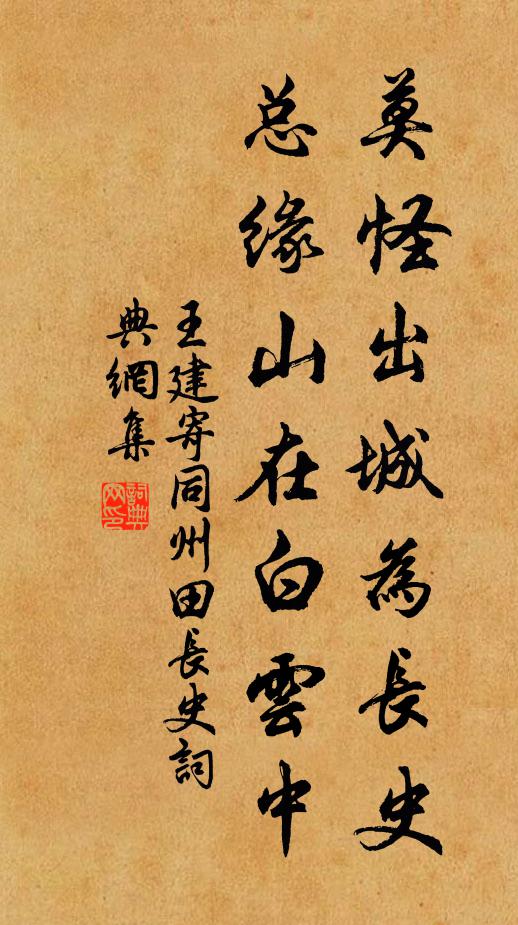 莫怪出城為長史
总缘山在白雲中
王建寄同州田長史詞
典網集
詞典網印